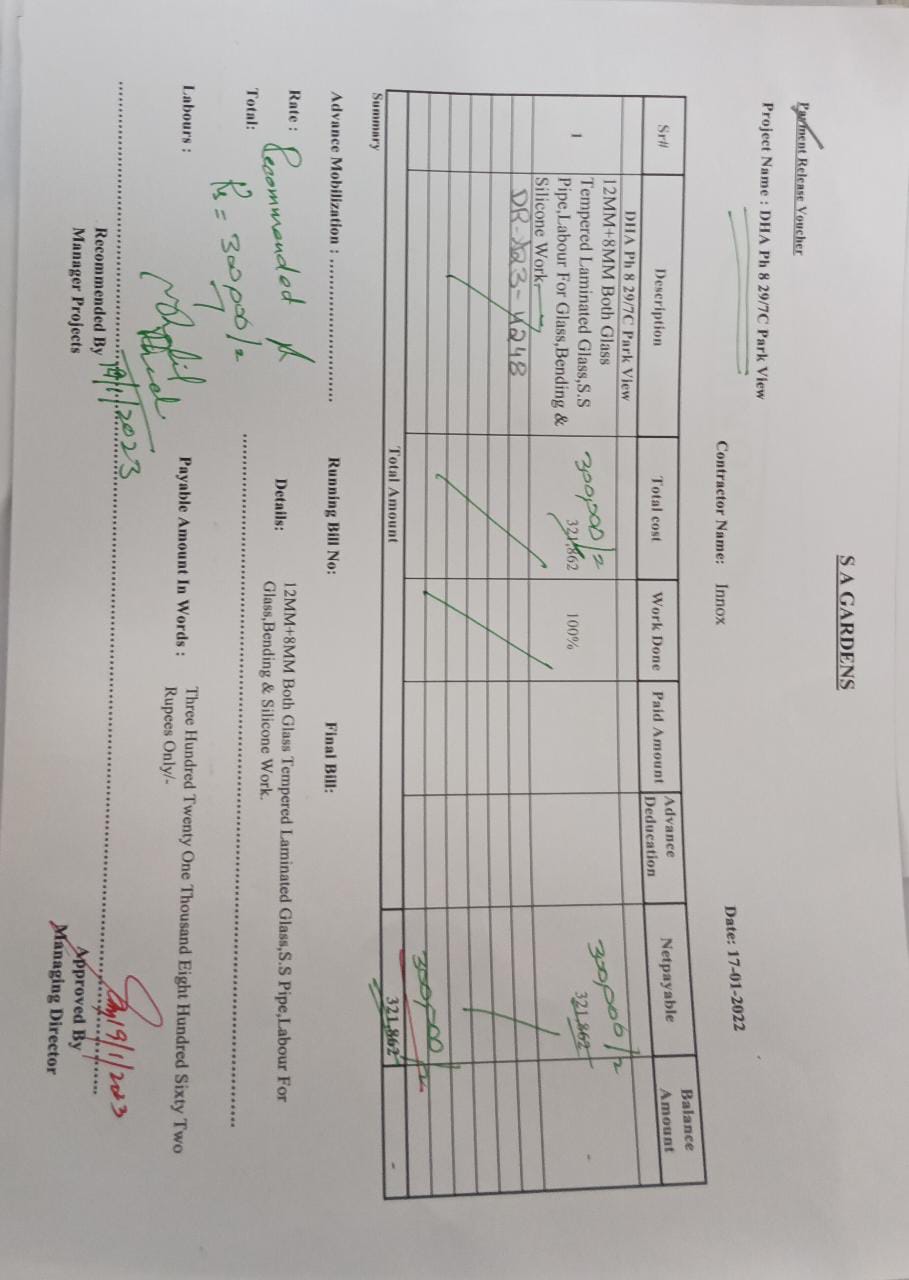 S A GARDENS
Payment Release Voucher
Project Name : DHA Ph 8 29/7C Park View
Contractor Name: Innox
Date: 17-01-2022
Sr# Description Total cost Work Done Paid Amount Advance Deducation Netpayable Balance Amount
DHA Ph 8 29/7C Park View
1 12MM+8MM Both Glass
Tempered Laminated Glass,S.S
Pipe,Labour For Glass,Bending &
Silicone Work.
300,000/=
321,862
100%
300,000/=
321,862
-
Total Amount
300,000/=
321,862
-
Summary
Advance Mobilization : .....................
Running Bill No:
Final Bill:
Rate :
Recommended
Details: 12MM+8MM Both Glass Tempered Laminated Glass,S.S Pipe,Labour For
Glass,Bending & Silicone Work.
Total:
Rs = 300,000/=
Labours :
Payable Amount In Words : Three Hundred Twenty One Thousand Eight Hundred Sixty Two
Rupees Only/-
19/1/2023
19/1/2023
Recommended By
Manager Projects
Approved By
Managing Director